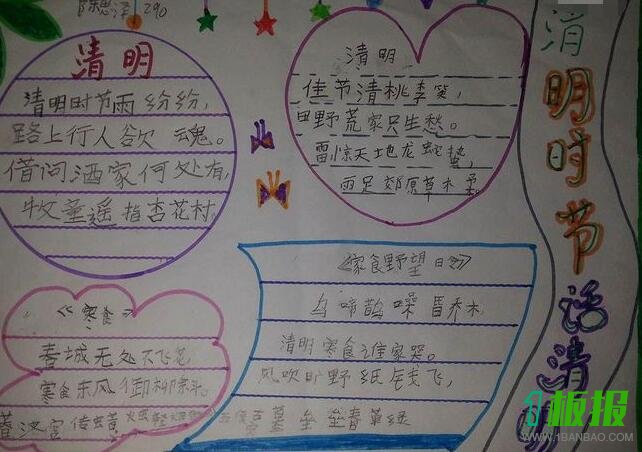 陈思泽 290
清明
清明时节雨纷纷，
路上行人欲魂。
借问酒家何处有，
牧童遥指杏花村。
清明
佳节清桃李笑，
田野荒冢只生愁。
雷惊天地龙蛇蛰，
雨足郊原草木柔。
《寒食》
春城无处不飞花
寒食东风御柳斜。
暮汉宫传
《寒食野望
乌啼鹊噪昏乔木，
清明寒食谁家哭。
风吹旷野纸钱飞，
古墓垒垒春草绿
清明时节话清明
板报
WWW.1BANBAO.COM